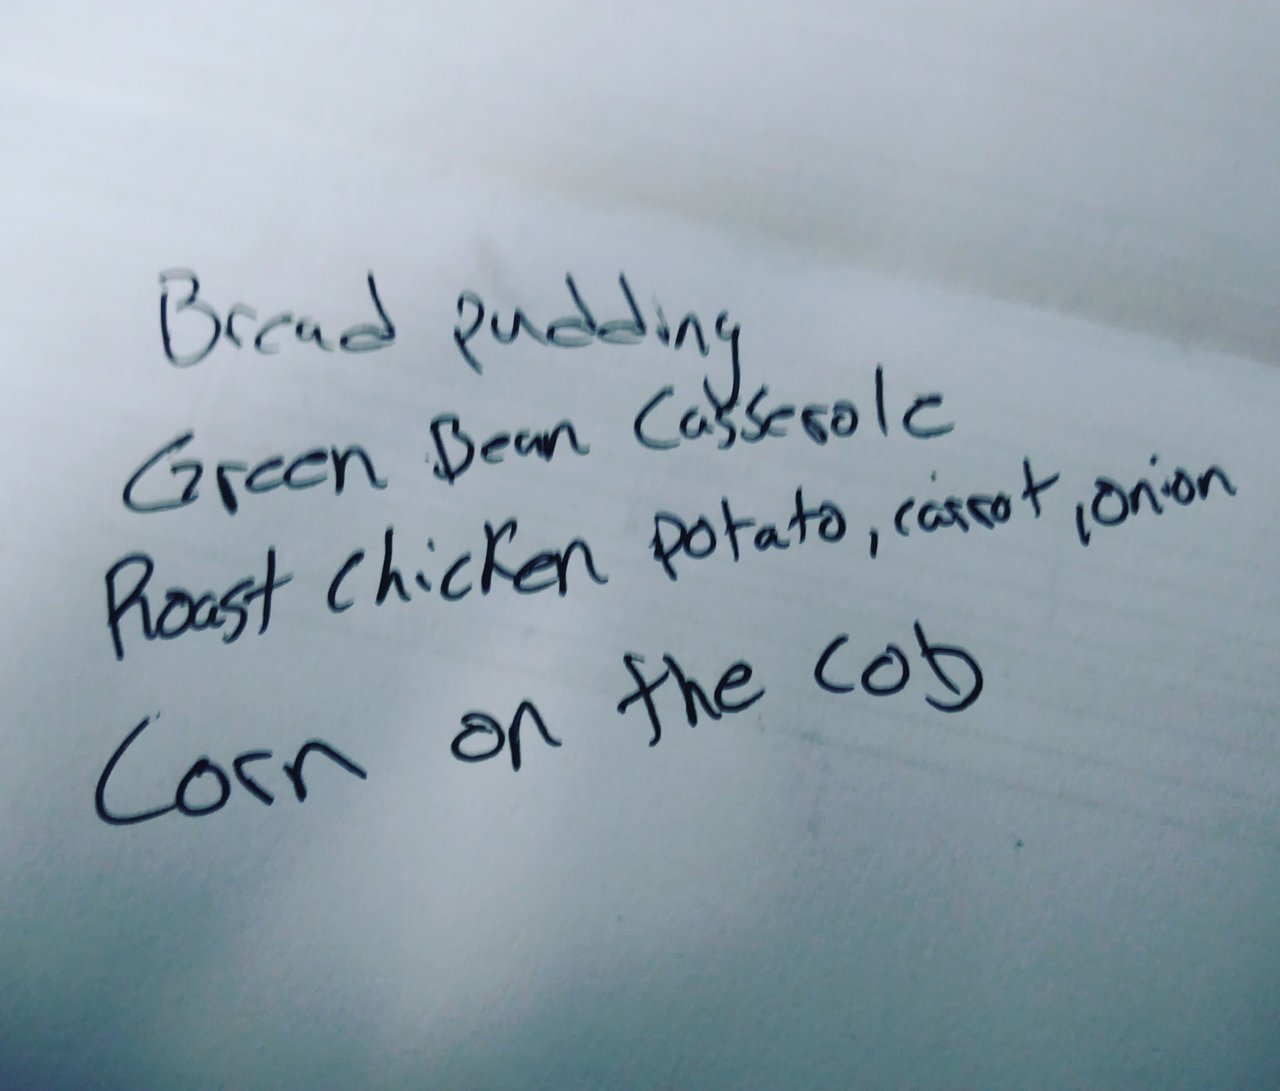 Bread pudding
Green Bean Casserole
Roast chicken potato, carrot, onion
Corn on the cob